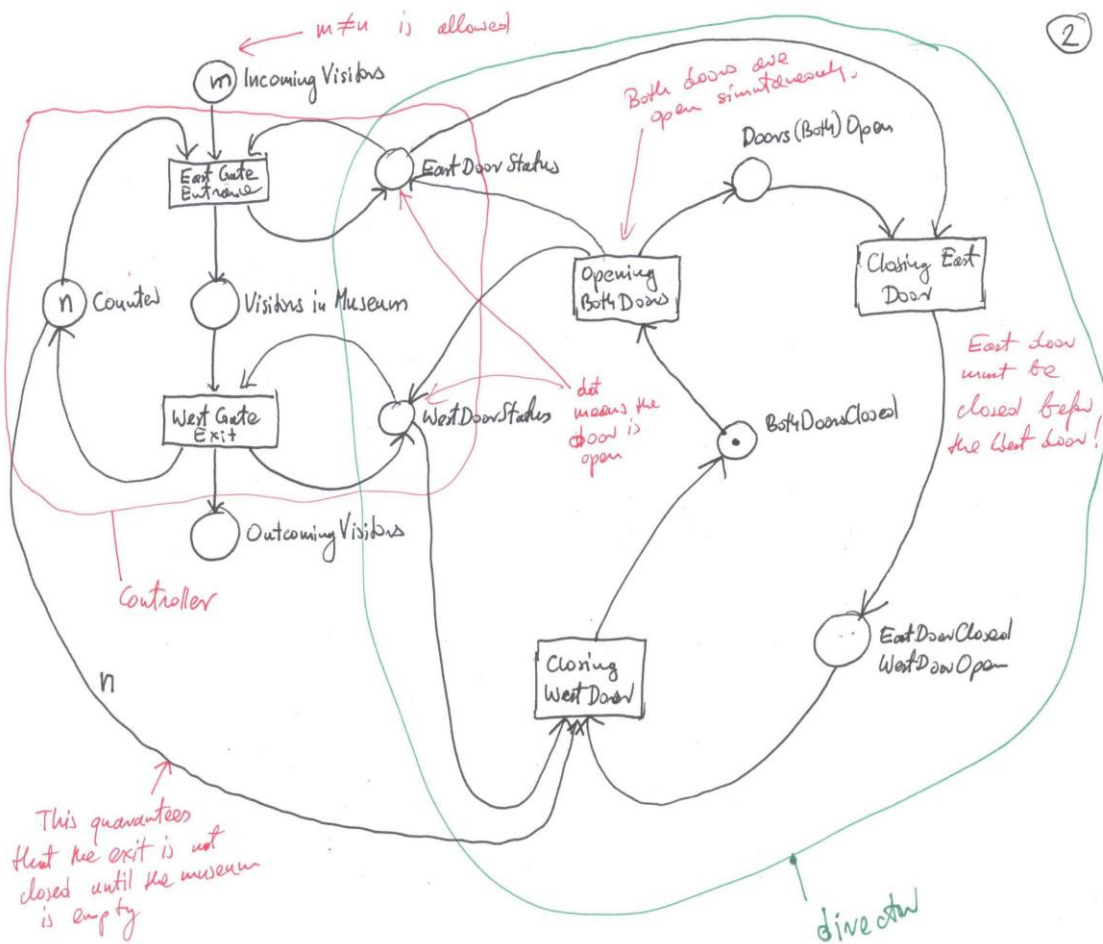 m≠n is allowed
2
m
Incoming Visitors
Both doors are
open simutneously.
Doors (Both) Open
East Gate
Entrance
East Door Status
Opening
Both Doors
Closing East
Door
n
Counter
Visitors in Museum
East door
must be
closed before
the West door!
West Gate
Exit
West Door Status
dot
means the
door is
open
Both Doors Closed
Outcoming Visitors
Controller
East Door Closed
West Door Open
Closing
West Door
n
This guarantees
that the exit is not
closed until the museum
is empty
director